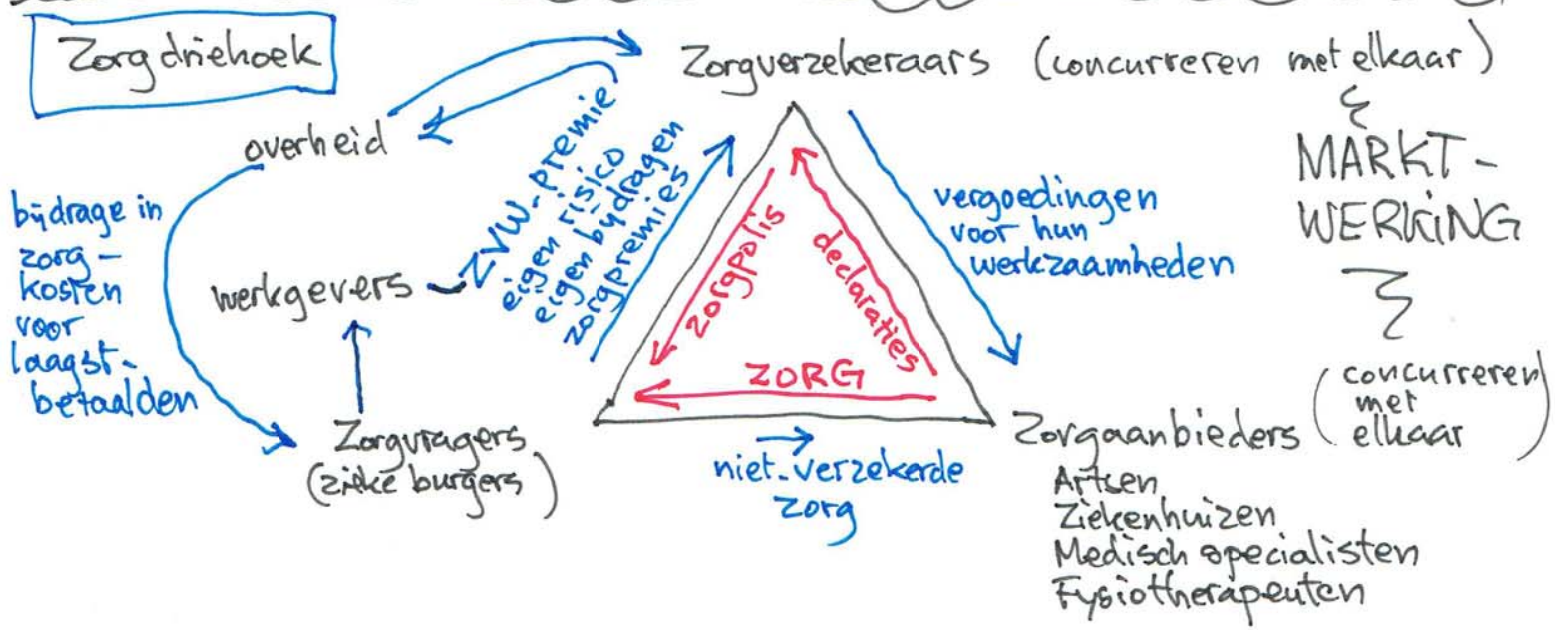 Zorgdriehoek
Zorgverzekeraars (concurreren met elkaar)
overheid
MARKT-
WERKING
bijdrage in
zorg-
kosten
voor
laagst-
betaalden
werkgevers
ZVW-premie
eigen risico
eigen bijdragen
zorgpremies
zorgpolis
declaraties
ZORG
vergoedingen
voor hun
werkzaamheden
Zorgvragers
(zieke burgers)
niet-verzekerde
zorg
Zorgaanbieders
(concurreren
met
elkaar)
Artsen
Ziekenhuizen
Medisch specialisten
Fysiotherapeuten